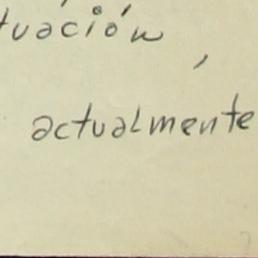 tuación
,
actualmente